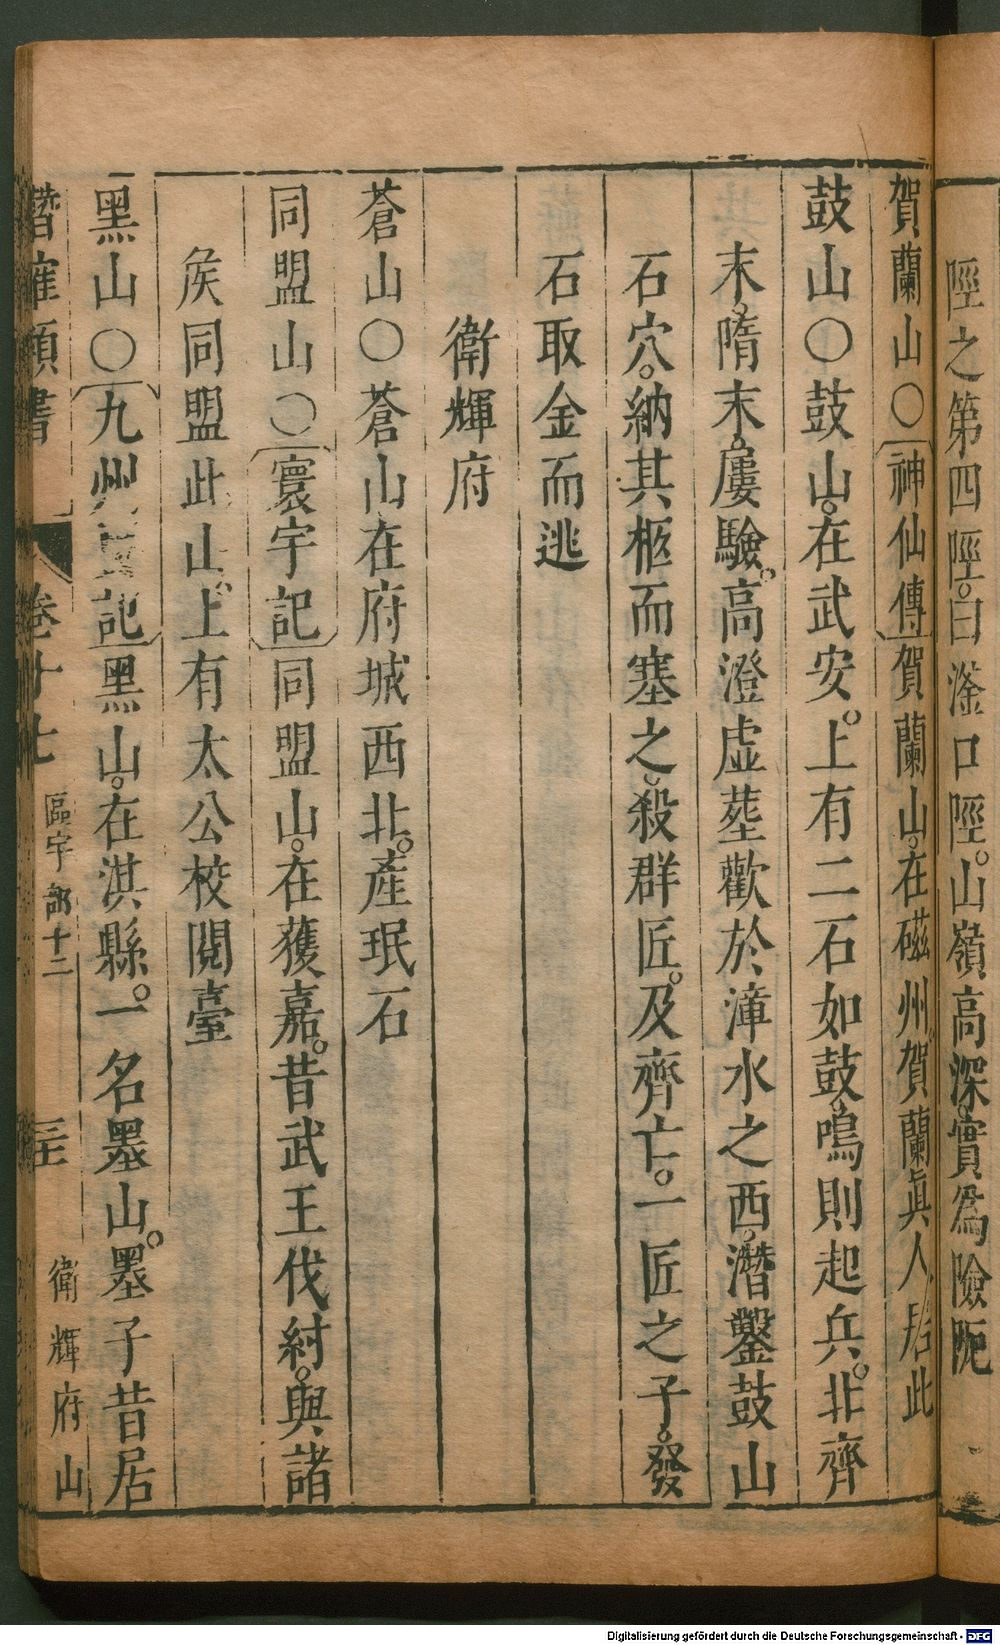 陘之第四陘。曰滏口陘。山嶺高深。實爲險阨
賀蘭山○神仙傳賀蘭山。在磁州。賀蘭眞人居此
鼓山○鼓山。在武安。上有二石如鼓。鳴則起兵。北齊
末。隋末。屢驗。高澄虛葬歡於漳水之西。潛鑿鼓山
石穴。納其柩而塞之。殺群匠。及齊亡。一匠之子。發
石取金而逃
衛輝府
蒼山○蒼山在府城西北。產珉石
同盟山○寰宇記同盟山。在獲嘉。昔武王伐紂。與諸
侯同盟此山。上有太公校閱臺
黑山○九州要記黑山。在淇縣。一名墨山。墨子昔居
潛確類書 卷十七 區宇部十二 三 衛輝府山
Digitalisierung gefördert durch die Deutsche Forschungsgemeinschaft - DFG